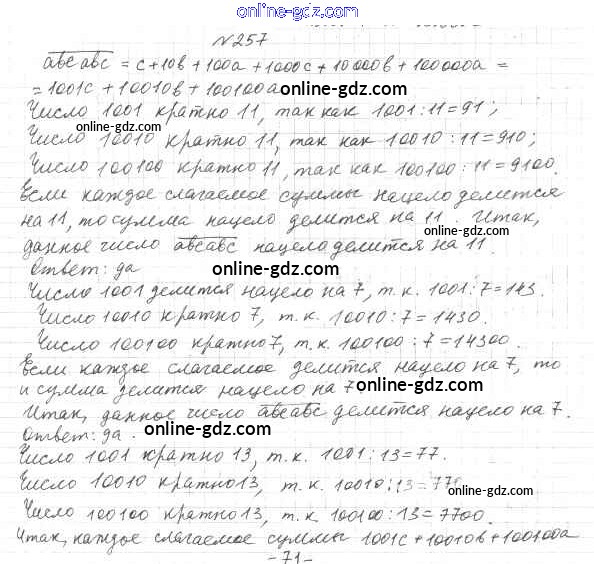 online-gdz.com
№257
abcabc = c+10b+100a+1000c+10000b+100000a =
= 1001c+10010b+100100a online-gdz.com
Число 1001 кратно 11, так как 1001:11=91;
online-gdz.com
Число 10010 кратно 11, так как 10010:11=910;
online-gdz.com
Число 100100 кратно 11, так как 100100:11=9100.
Если каждое слагаемое суммы нацело делится
на 11, то сумма нацело делится на 11. Итак,
online-gdz.com
данное число abcabc нацело делится на 11.
Ответ: да online-gdz.com
Число 1001 делится нацело на 7, т.к. 1001:7=143.
Число 10010 кратно 7, т.к. 10010:7=1430.
online-gdz.com
Число 100100 кратно 7, т.к. 100100:7=14300.
Если каждое слагаемое делится нацело на 7, то
и сумма делится нацело на 7. online-gdz.com
Итак, данное число abcabc делится нацело на 7.
Ответ: да. online-gdz.com
Число 1001 кратно 13, т.к. 1001:13=77.
online-gdz.com
Число 10010 кратно 13, т.к. 10010:13=770
online-gdz.com
Число 100100 кратно 13, т.к. 100100:13=7700.
online-gdz.com
Итак, каждое слагаемое суммы 1001c+10010b+100100a
-71-